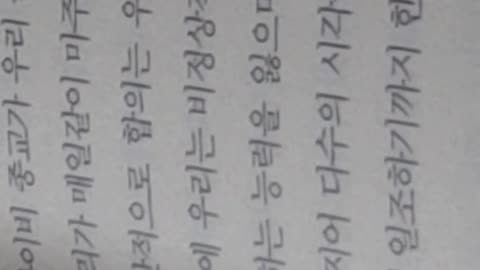 이비 종교가 우리
리가 매일같이 마주
적으로 합의는 우
에 우리는 비정상
하는 능력을 잃으며
지어 다수의 시각
일조하기까지 한